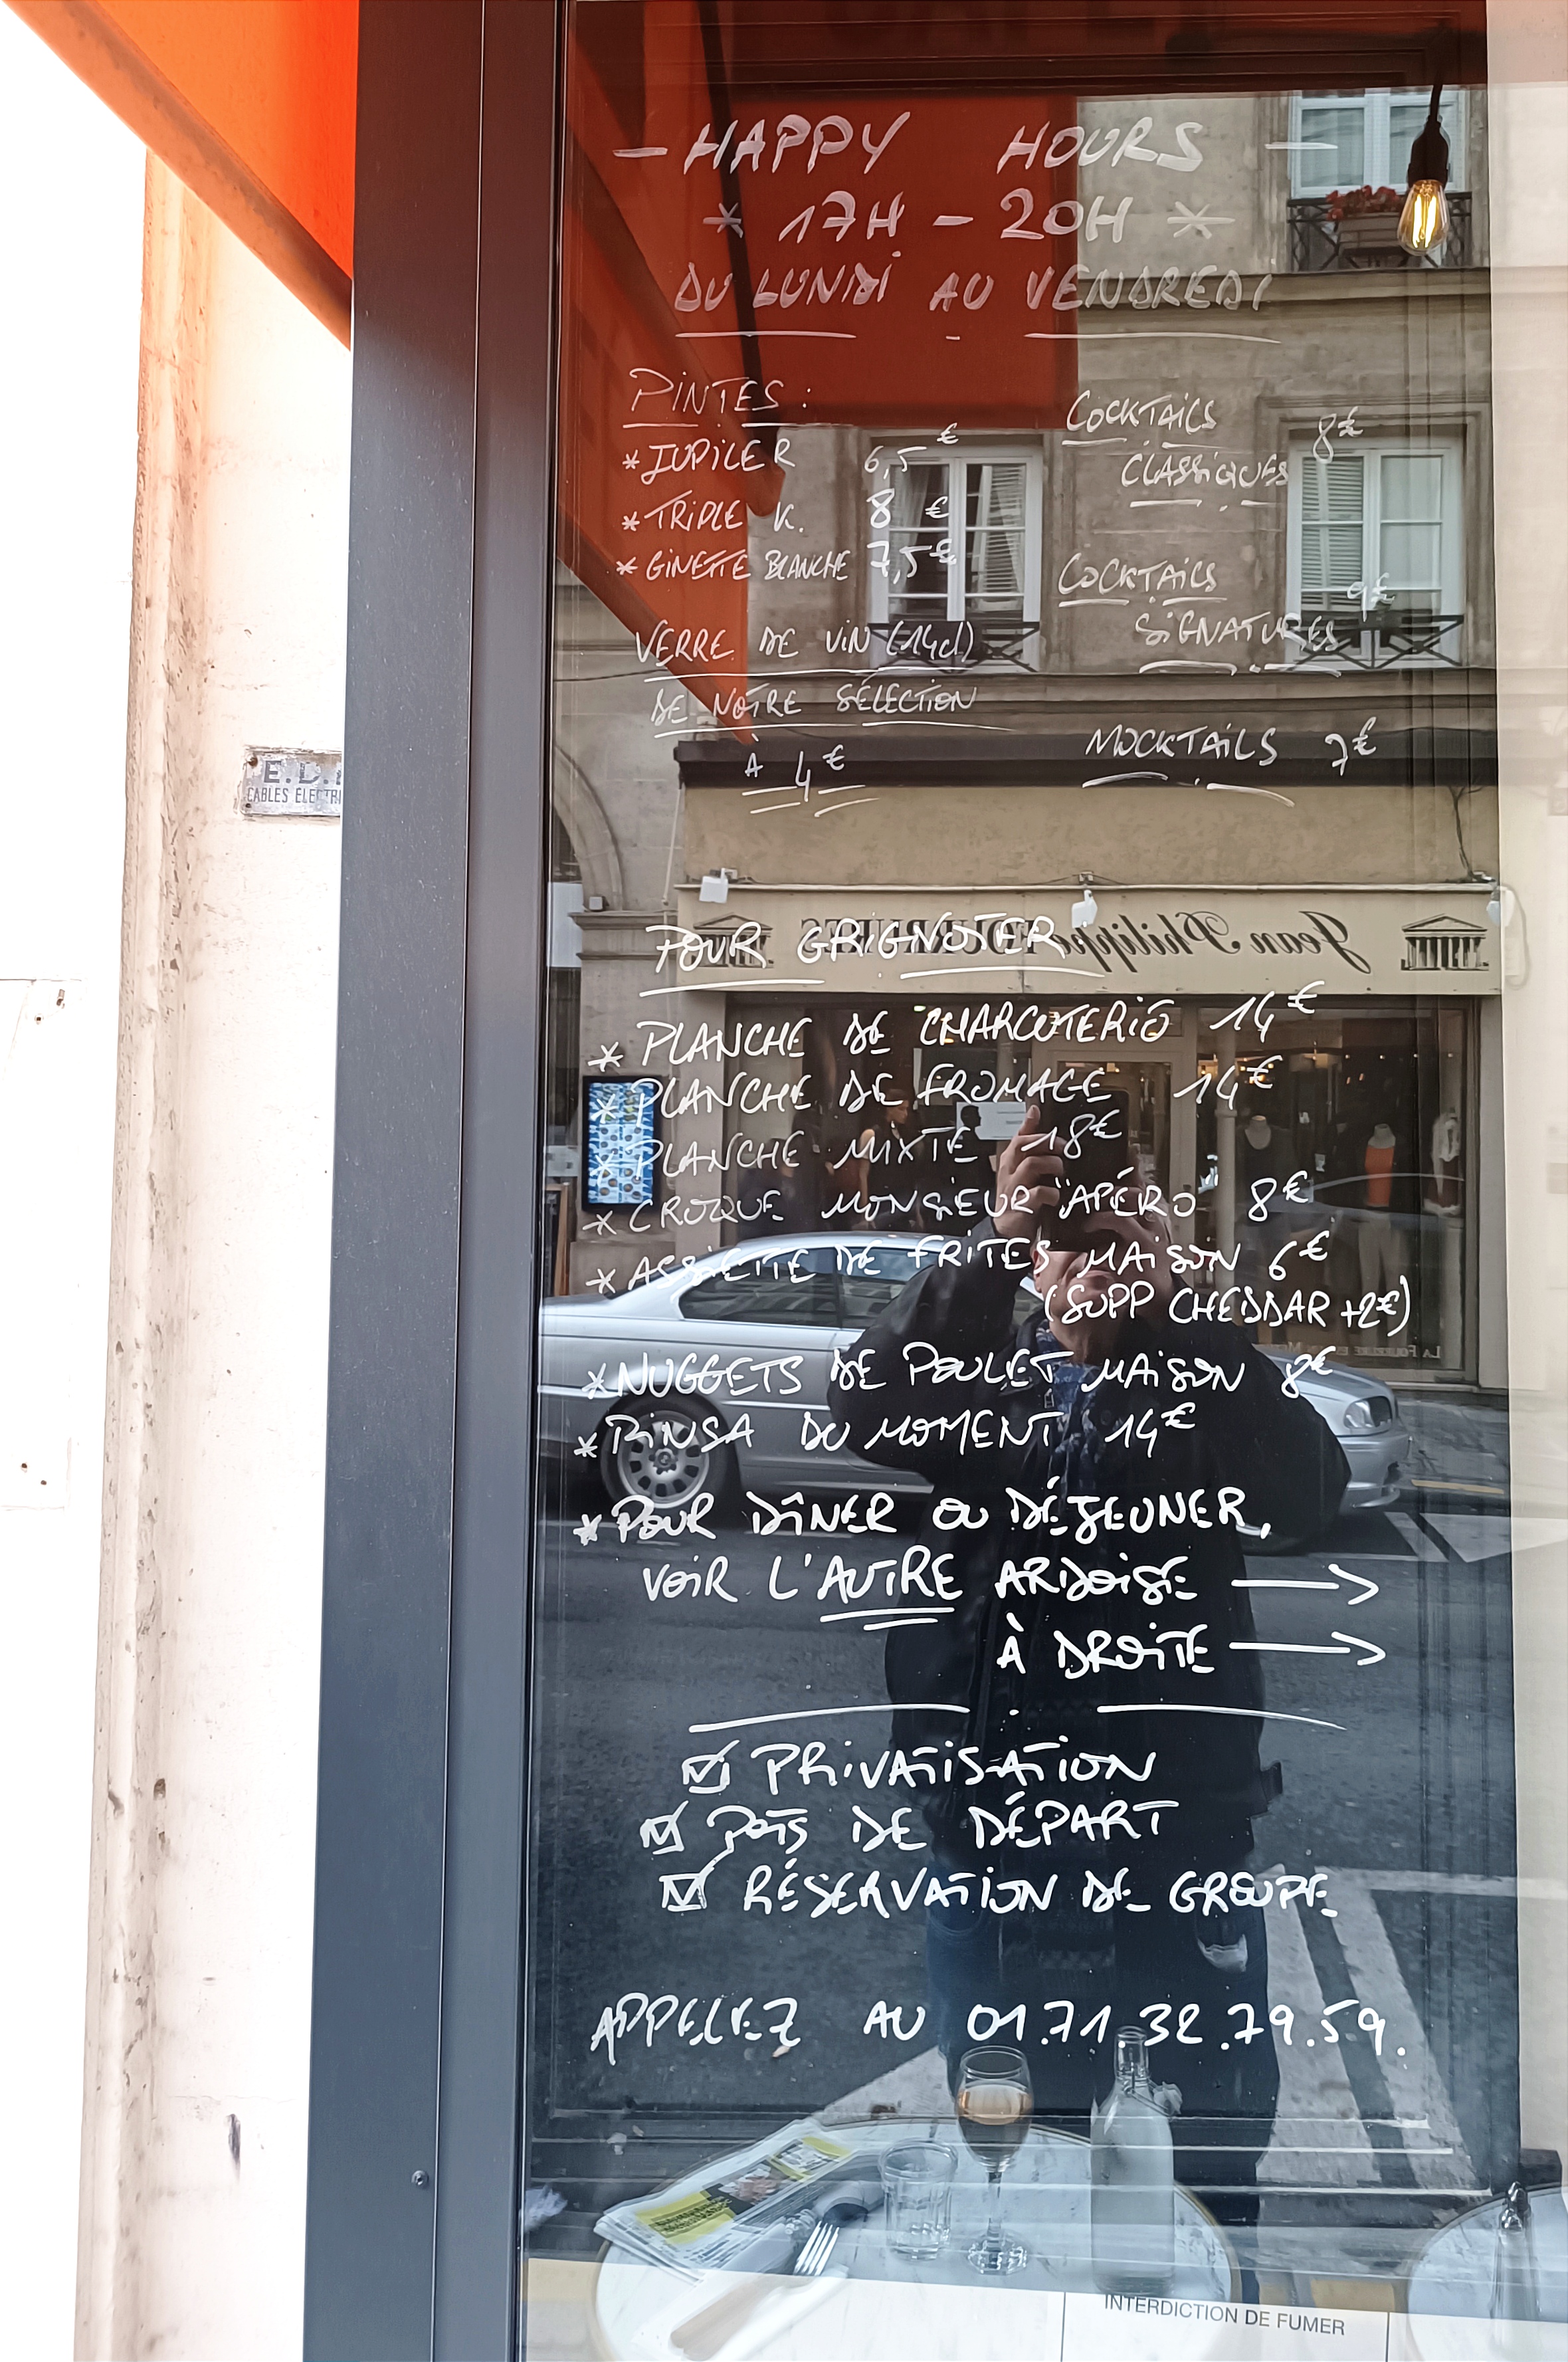 - HAPPY HOURS -
* 17H - 20H *
DU LUNDI AU VENDREDI
PINTES :
* JUPILER 6,5€
* TRIPLE K. 8€
* GINETTE BLANCHE 7,5€
VERRE DE VIN (14cl)
DE NOTRE SÉLECTION
À 4€
COCKTAILS
CLASSIQUES 8€
COCKTAILS
SIGNATURES 9€
MOCKTAILS 7€
E.D.
CABLES ÉLECTRI
Jean Philippe
POUR GRIGNOTER
* PLANCHE DE CHARCUTERIE 14€
* PLANCHE DE FROMAGE 14€
* PLANCHE MIXTE 18€
* CROQUE MONSIEUR "APÉRO" 8€
* ASSIETTE DE FRITES MAISON 6€
(SUPP CHEDDAR +2€)
* NUGGETS DE POULET MAISON 8€
* PINSA DU MOMENT 14€
* POUR DÎNER OU DÉJEUNER,
VOIR L'AUTRE ARDOISE →
À DROITE →
☑ PRIVATISATION
☑ POTS DE DÉPART
☑ RÉSERVATION DE GROUPE
APPELEZ AU 01.71.32.79.59.
INTERDICTION DE FUMER